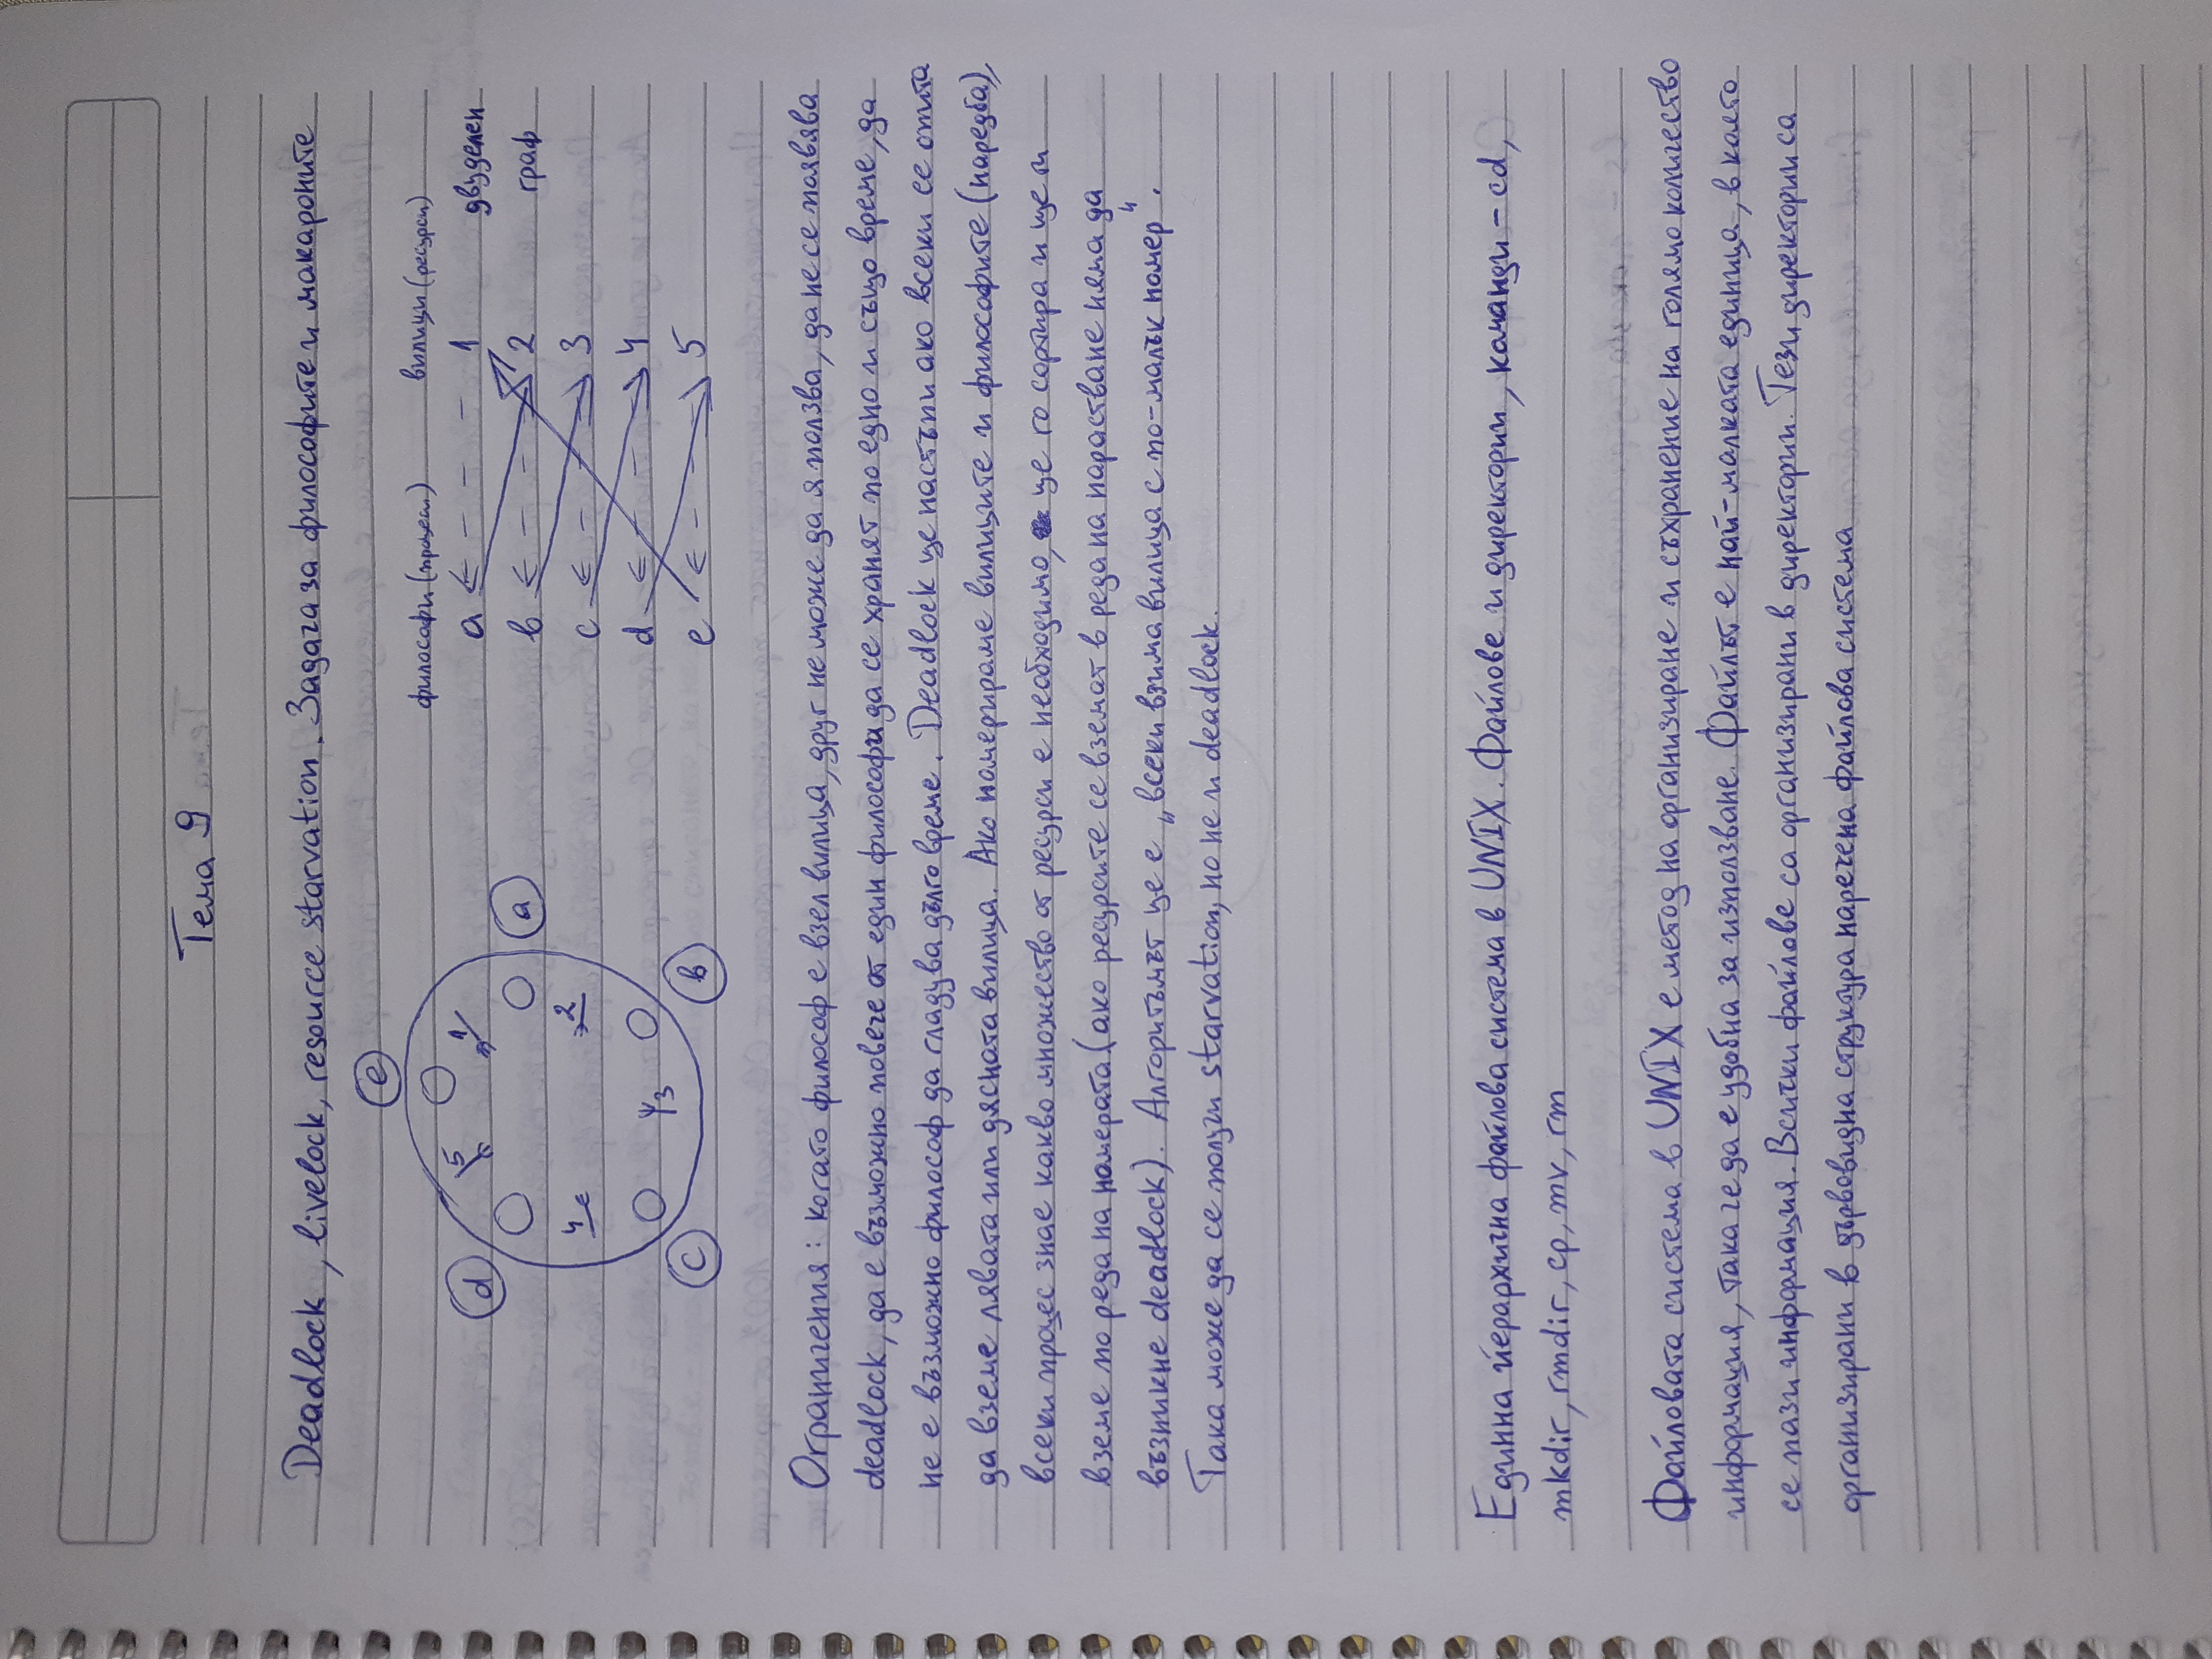 Тема 9
Deadlock, livelock, resource starvation. Задача за философите и макароните
e
5 1
d
a
4 2
3
c
b
философи (процеси) вилици (ресурси)
a 1 двуделен
b 2 граф
c 3
d 4
e 5
Ограничения: когато философ е взел вилица, друг не може да я ползва, да не се появява
deadlock, да е възможно повече от един философи да се хранят по едно и също време, да
не е възможно философ да гладува дълго време. Deadlock ще настъпи ако всеки се опита
да вземе лявата или дясната вилица. Ако номерираме вилиците и философите (наредба),
всеки процес знае какво множество от ресурси е необходимо, ще го сортира и ще ги
вземе по реда на номерата (ако ресурсите се вземат в реда на нарастване няма да
възникне deadlock). Алгоритъмът ще е „всеки взима вилица с по-малък номер“.
Така може да се получи starvation, но не и deadlock.
Единна йерархична файлова система в UNIX. Файлове и директории, команди – cd,
mkdir, rmdir, cp, mv, rm
Файловата система в UNIX е метод на организиране и съхранение на голямо количество
информация, така че да е удобна за използване. Файлът е най-малката единица, в която
се пази информация. Всички файлове са организирани в директории. Тези директории са
организирани в дървовидна структура наречена файлова система